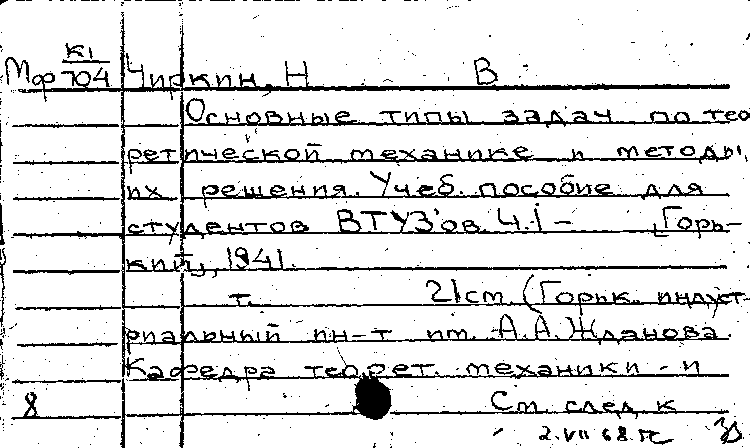 К1
Мф 704 Чиркин, Н В
Основные типы задач по тео
ретической механике и методы
их решения. Учеб. пособие для
студентов ВТУЗ'ов. Ч.I – [Горь-
кий], 1941.
т. 21 см. (Горьк. индуст-
риальный ин-т им. А.А. Жданова.
Кафедра теорет. механики и
8 См. след. к
2.VII 68 г.